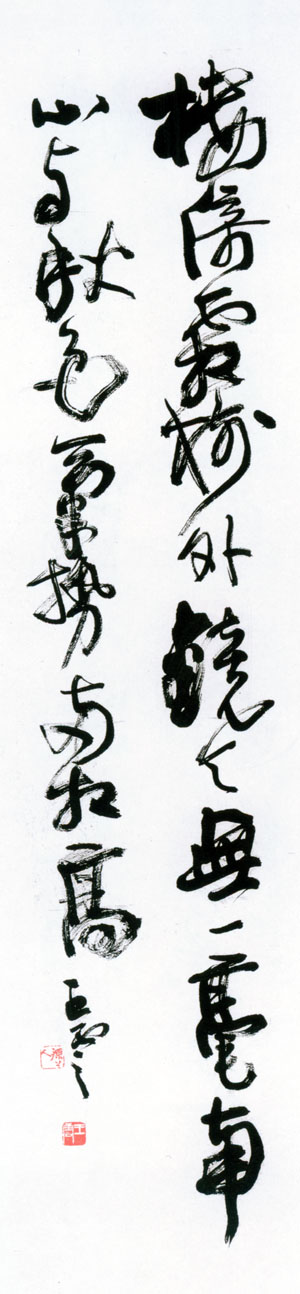 樓倚霜樹外鏡天無一毫南
山与秋色氣勢兩相高